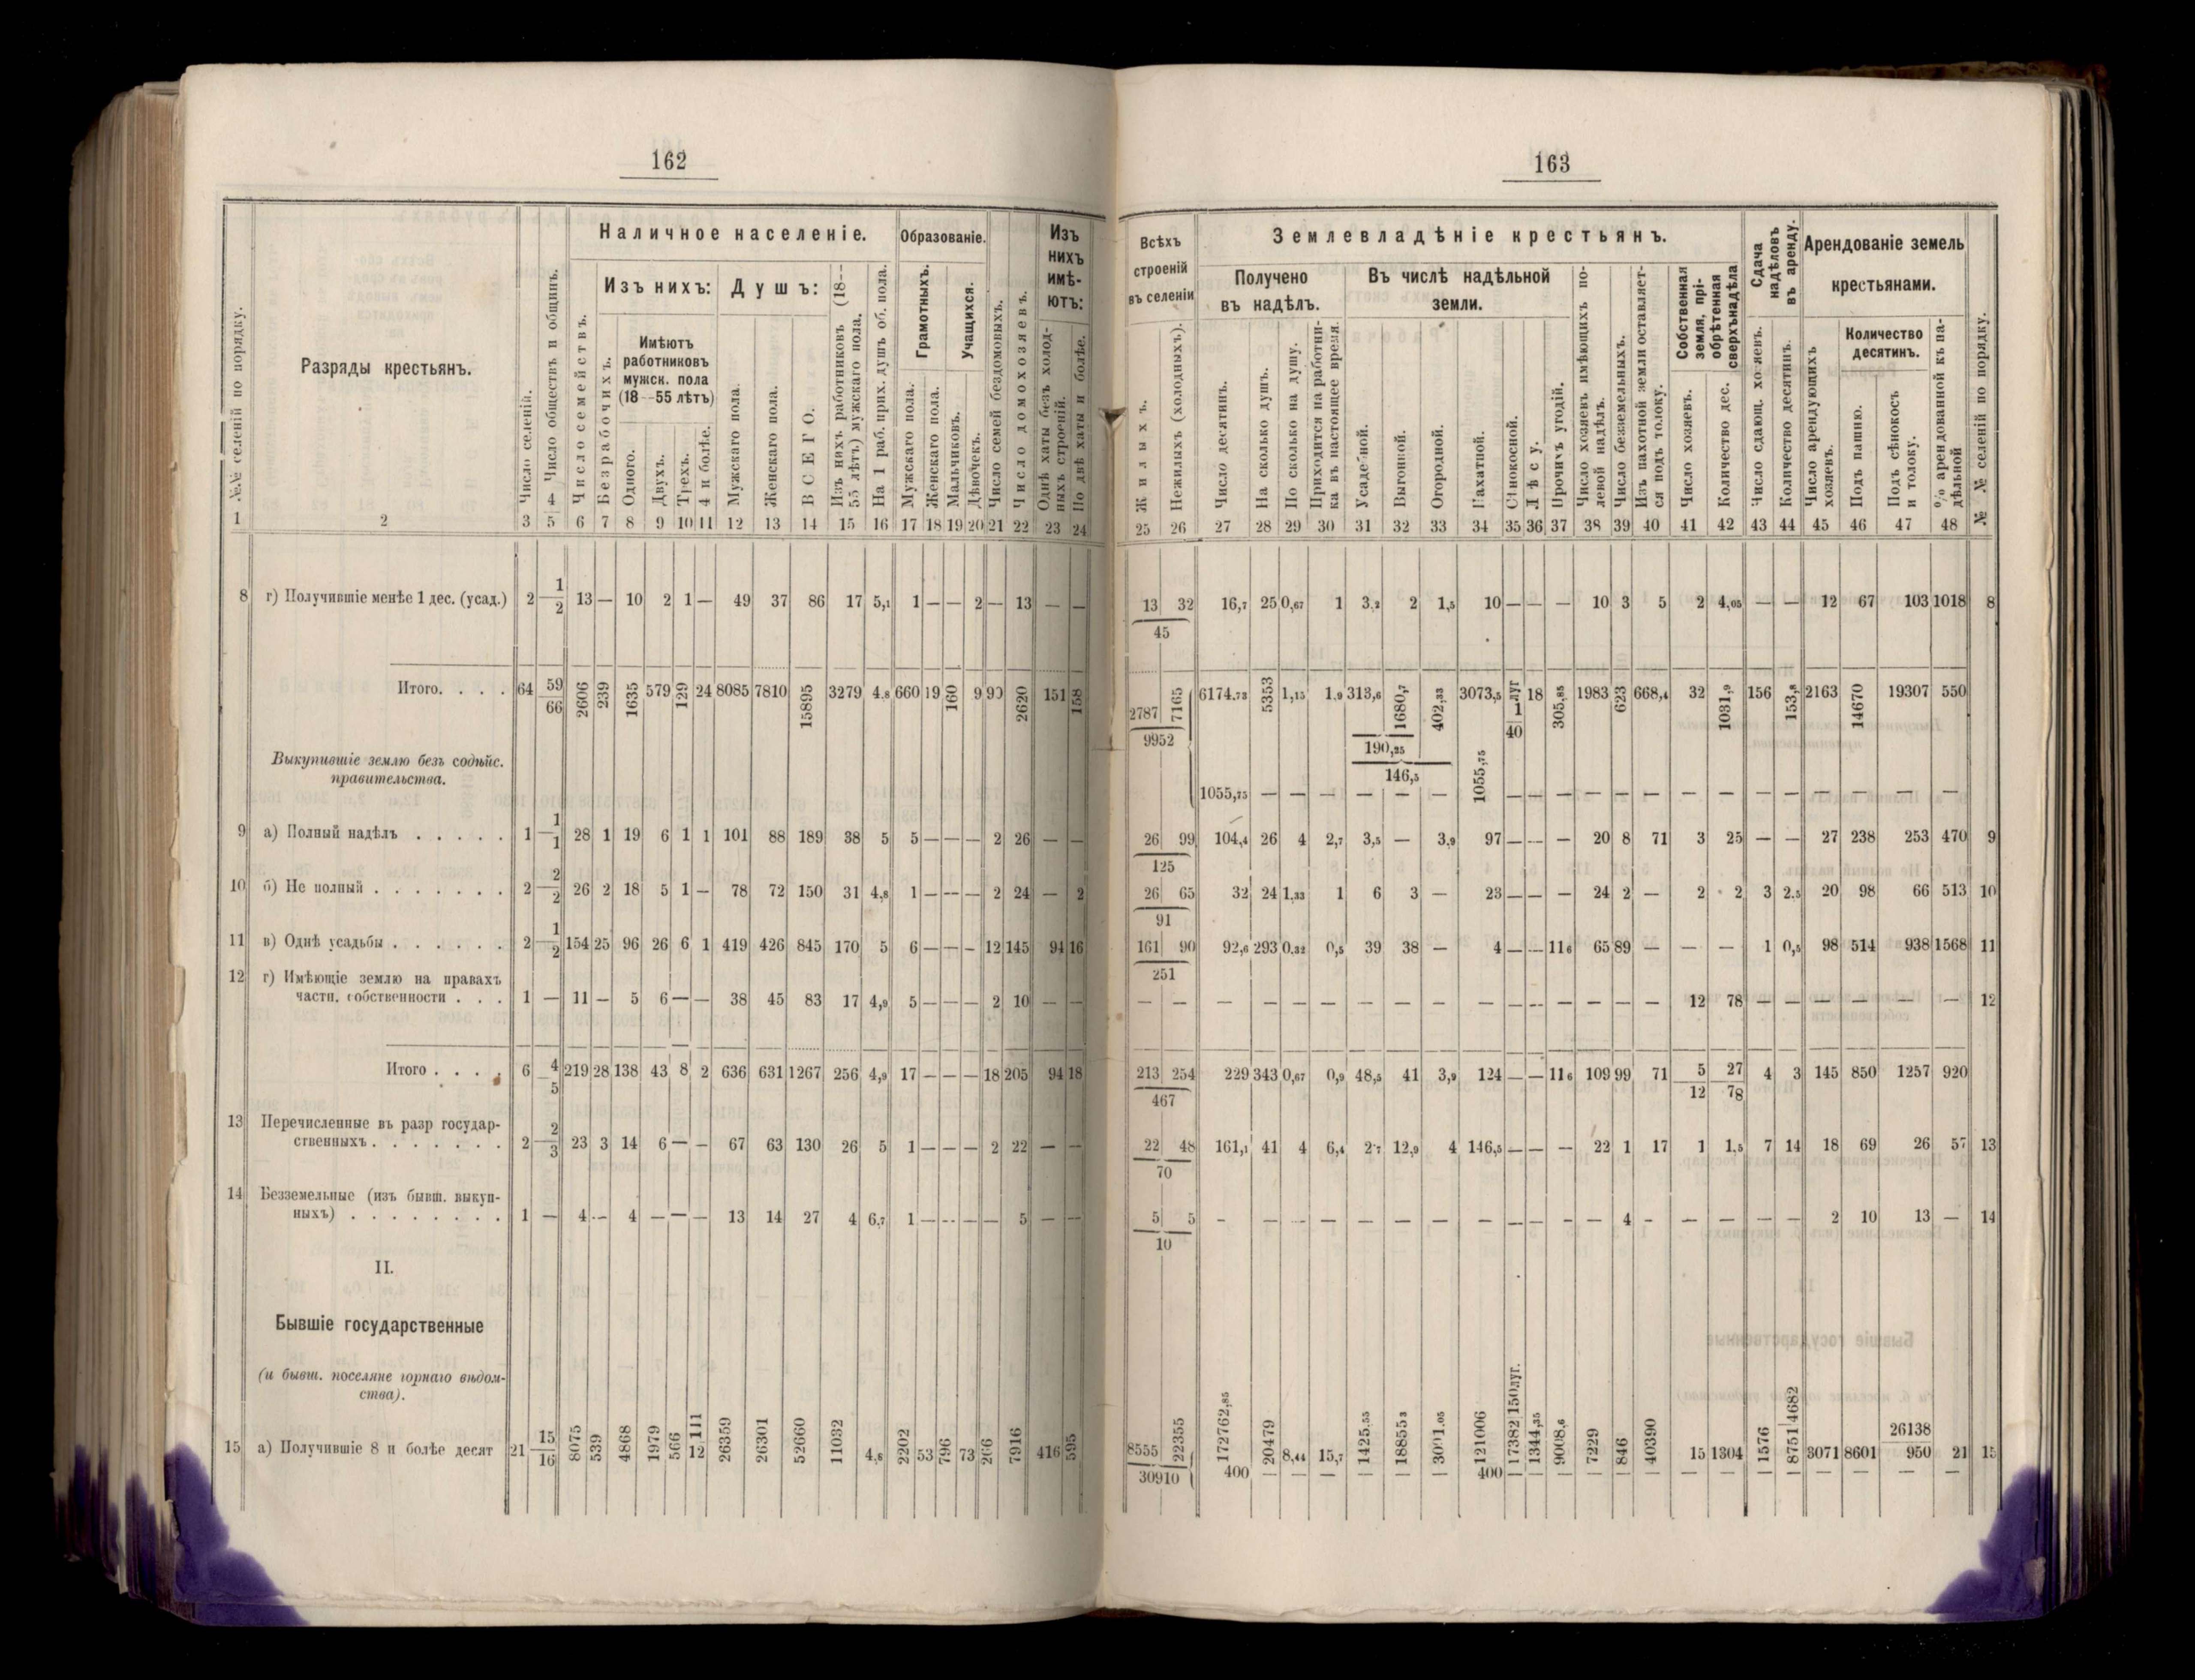 162
№№ селеній по порядку.
Разряды крестьянъ.
Число селеній.
Число обществъ и общинъ.
Наличное населеніе.
Число семействъ.
Изъ нихъ:
Безрабочихъ.
Имѣютъ
работниковъ
мужск. пола
(18—55 лѣтъ)
Одного.
Двухъ.
Трехъ.
4 и болѣе.
Душъ:
Мужскаго пола.
Женскаго пола.
ВСЕГО.
Изъ нихъ работниковъ (18—
55 лѣтъ) мужскаго пола.
На 1 раб. прих. душъ об. пола.
Образованіе.
Грамотныхъ.
Учащихся.
Мужскаго пола.
Женскаго пола.
Мальчиковъ.
Дѣвочекъ.
Число семей бездомовыхъ.
Число домохозяевъ.
Изъ
нихъ
имѣ-
ютъ:
Однѣ хаты безъ холод-
ныхъ строеній.
По двѣ хаты и болѣе.
1 2 3 4 5 6 7 8 9 10 11 12 13 14 15 16 17 18 19 20 21 22 23 24
8 г) Получившіе менѣе 1 дес. (усад.) 2 1/2 13 — 10 2 1 — 49 37 86 17 5,1 1 — — 2 — 13 — —
Итого. . . . 64 59/66 2606 239 1635 579 129 24 8085 7810 15895 3279 4,8 660 19 160 9 90 2620 151 158
Выкупившіе землю безъ содѣйс.
правительства.
9 а) Полный надѣлъ . . . . . 1 1/1 28 1 19 6 1 1 101 88 189 38 5 5 — — — 2 26 — —
10 б) Не полный . . . . . . . 2 2/2 26 2 18 5 1 — 78 72 150 31 4,8 1 — — — 2 24 — 2
11 в) Однѣ усадьбы . . . . . . 2 1/2 154 25 96 26 6 1 419 426 845 170 5 6 — — — 12 145 94 16
12 г) Имѣющіе землю на правахъ
частн. собственности . . . 1 — 11 — 5 6 — — 38 45 83 17 4,9 5 — — — 2 10 — —
Итого . . . . 6 4/5 219 28 138 43 8 2 636 631 1267 256 4,9 17 — — — 18 205 94 18
13 Перечисленные въ разр государ-
ственныхъ . . . . . . . 2 2/3 23 3 14 6 — — 67 63 130 26 5 1 — — — 2 22 — —
14 Безземельные (изъ бывш. выкуп-
ныхъ) . . . . . . . . 1 — 4 — 4 — — — 13 14 27 4 6,7 1 — — — — 5 — —
II.
Бывшіе государственные
(и бывш. поселяне горнаго вѣдом-
ства).
15 а) Получившіе 8 и болѣе десят 21 15/16 8075 539 4868 1979 566 111 12 26359 26301 52660 11032 4,8 2202 53 796 73 266 7916 416 595
163
Всѣхъ
строеній
въ селеніи
Жилыхъ.
Нежилыхъ (холодныхъ).
Землевладѣніе крестьянъ.
Получено
въ надѣлъ.
Число десятинъ.
На сколько душъ.
По сколько на душу.
Приходится на работни-
ка въ настоящее время.
Въ числѣ надѣльной
земли.
Усадебной.
Выгонной.
Огородной.
Пахатной.
Сѣнокосной.
Лѣсу.
Прочихъ угодій.
Число хозяевъ имѣющихъ по-
левой надѣлъ.
Число безземельныхъ.
Изъ пахотной земли оставляет-
ся подъ толоку.
Собственная
земля, прі-
обрѣтенная
сверхънадѣла
Число хозяевъ.
Количество дес.
Сдача
надѣловъ
въ аренду.
Число сдающ. хозяевъ.
Количество десятинъ.
Арендованіе земель
крестьянами.
Число арендующихъ
хозяевъ.
Количество
десятинъ.
Подъ пашню.
Подъ сѣнокосъ
и толоку.
% арендованной къ на-
дѣльной
№ № селеній по порядку.
25 26 27 28 29 30 31 32 33 34 35 36 37 38 39 40 41 42 43 44 45 46 47 48
13 32 16,7 25 0,67 1 3,2 2 1,5 10 — — — 10 3 5 2 4,05 — — 12 67 103 1018 8
45
2787 7165 6174.73 5353 1,15 1,9 313,6 1680,7 402,33 3073,5 луг 1/40 18 305,85 1983 623 668,4 32 1031,9 156 153,8 2163 14670 19307 550
9952
190,25
146,5
1055,75 — — — — — — 1055,75 — — — — — — — — — — — — — —
26 99 104,4 26 4 2,7 3,5 — 3,9 97 — — — 20 8 71 3 25 — — 27 238 253 470 9
125
26 65 32 24 1,33 1 6 3 — 23 — — — 24 2 — 2 2 3 2,5 20 98 66 513 10
91
161 90 92,6 293 0,32 0,5 39 38 — 4 — — 11 6 65 89 — — — 1 0,5 98 514 938 1568 11
251
— — — — — — — — — — — — — — — — 12 78 — — — — — — 12
213 254 229 343 0,67 0,9 48,5 41 3,9 124 — — 11 6 109 99 71 5/12 27/78 4 3 145 850 1257 920
467
22 48 161,1 41 4 6,4 2,7 12,9 4 146,5 — — — 22 1 17 1 1,5 7 14 18 69 26 57 13
70
5 5 — — — — — — — — — — — — 4 — — — — — 2 10 13 — 14
10
8555 22355 172762,85 20479 8,44 15,7 1425,55 18855 3 3091,05 121006 17382 150луг. 1344,35 9008,6 7229 846 40390 15 1304 1576 8751 4682 3071 8601 26138/950 21 15
30910 400 — — — — — — 400 — — — — — — — — — — — — — —